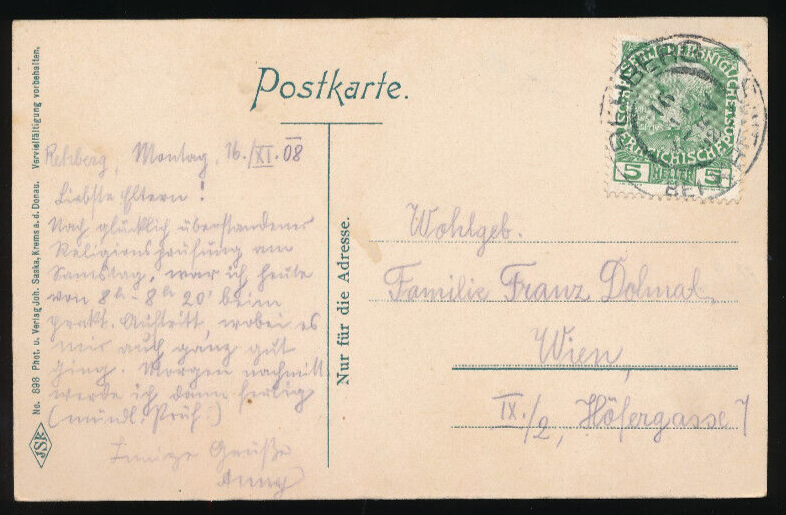 Postkarte.
Rehberg, Montag, 16./XI. 08
Liebste Eltern!
Nach glücklich überstandener
Religionsprüfung am
Samstag, war ich heute
von 8h - 8h 20' beim
prakt. Auftritt, wobei es
mir auch ganz gut
ging. Morgen nachmitt.
werde ich dann fertig
(mündl. Prüf.)
Innige Grüße
Anny
Wohlgeb.
Familie Franz Dolmal,
Wien,
IX./2, Höfergasse 7
Nur für die Adresse.
No. 898 Phot. u. Verlag Joh. Saska, Krems a. d. Donau. Vervielfältigung vorbehalten.
JSK
REHBERG
16
5 HELLER 5